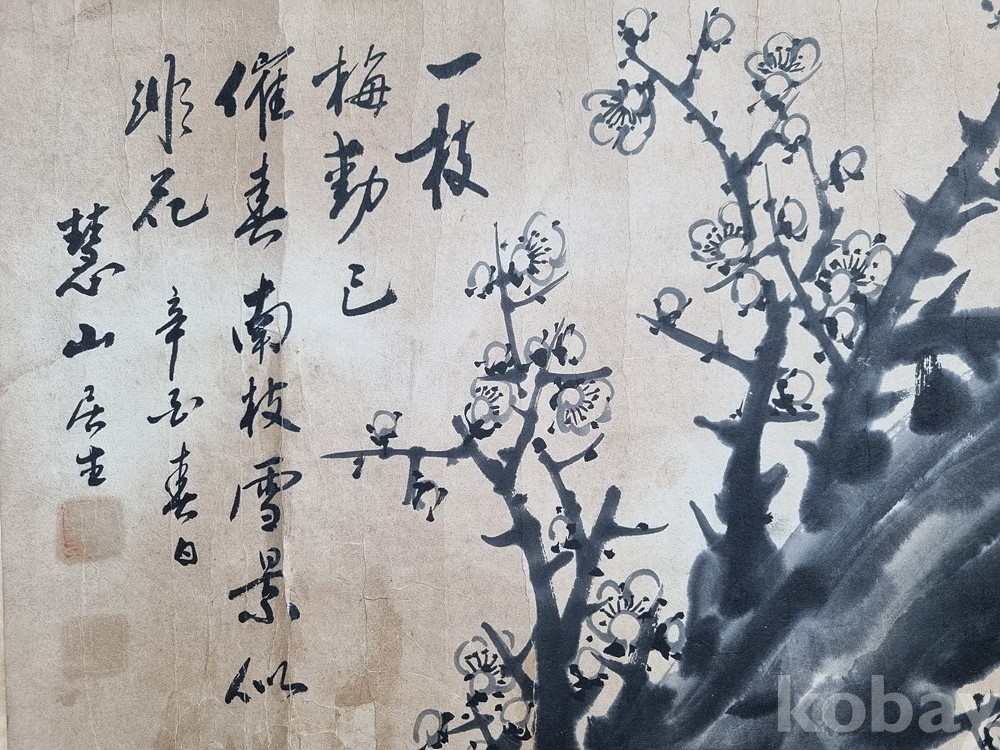 一枝
梅動已
催春南枝雪景似
非花
辛酉春日
慧山居士
kobay